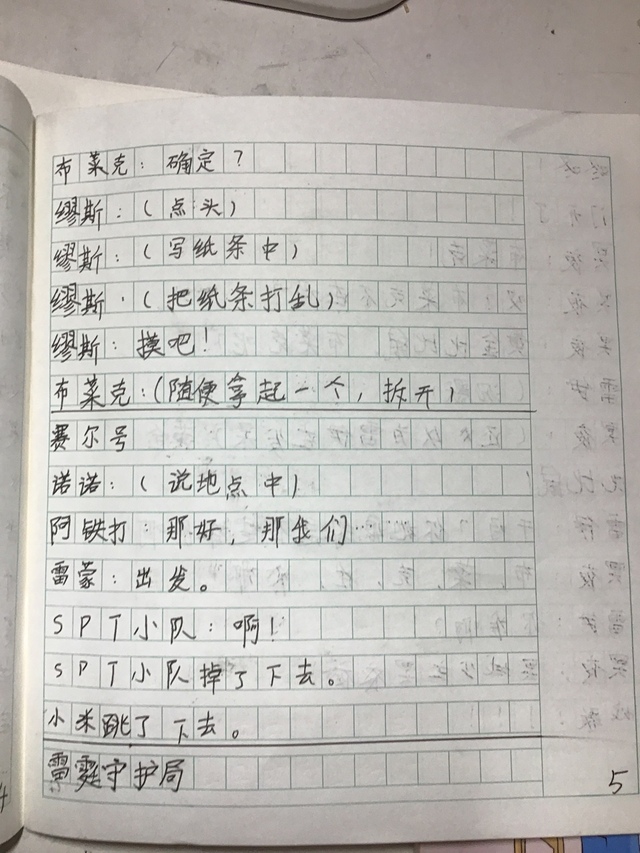 布莱克：确定？
缪斯：（点头）
缪斯：（写纸条中）
缪斯：（把纸条打乱）
缪斯：摸吧！
布莱克：（随便拿起一个，拆开）
赛尔号
诺诺：（说地点中）
阿铁打：那好，那我们……
雷蒙：出发。
SPT小队：啊！
SPT小队掉了下去。
小米跳了下去。
雷霆守护局
5